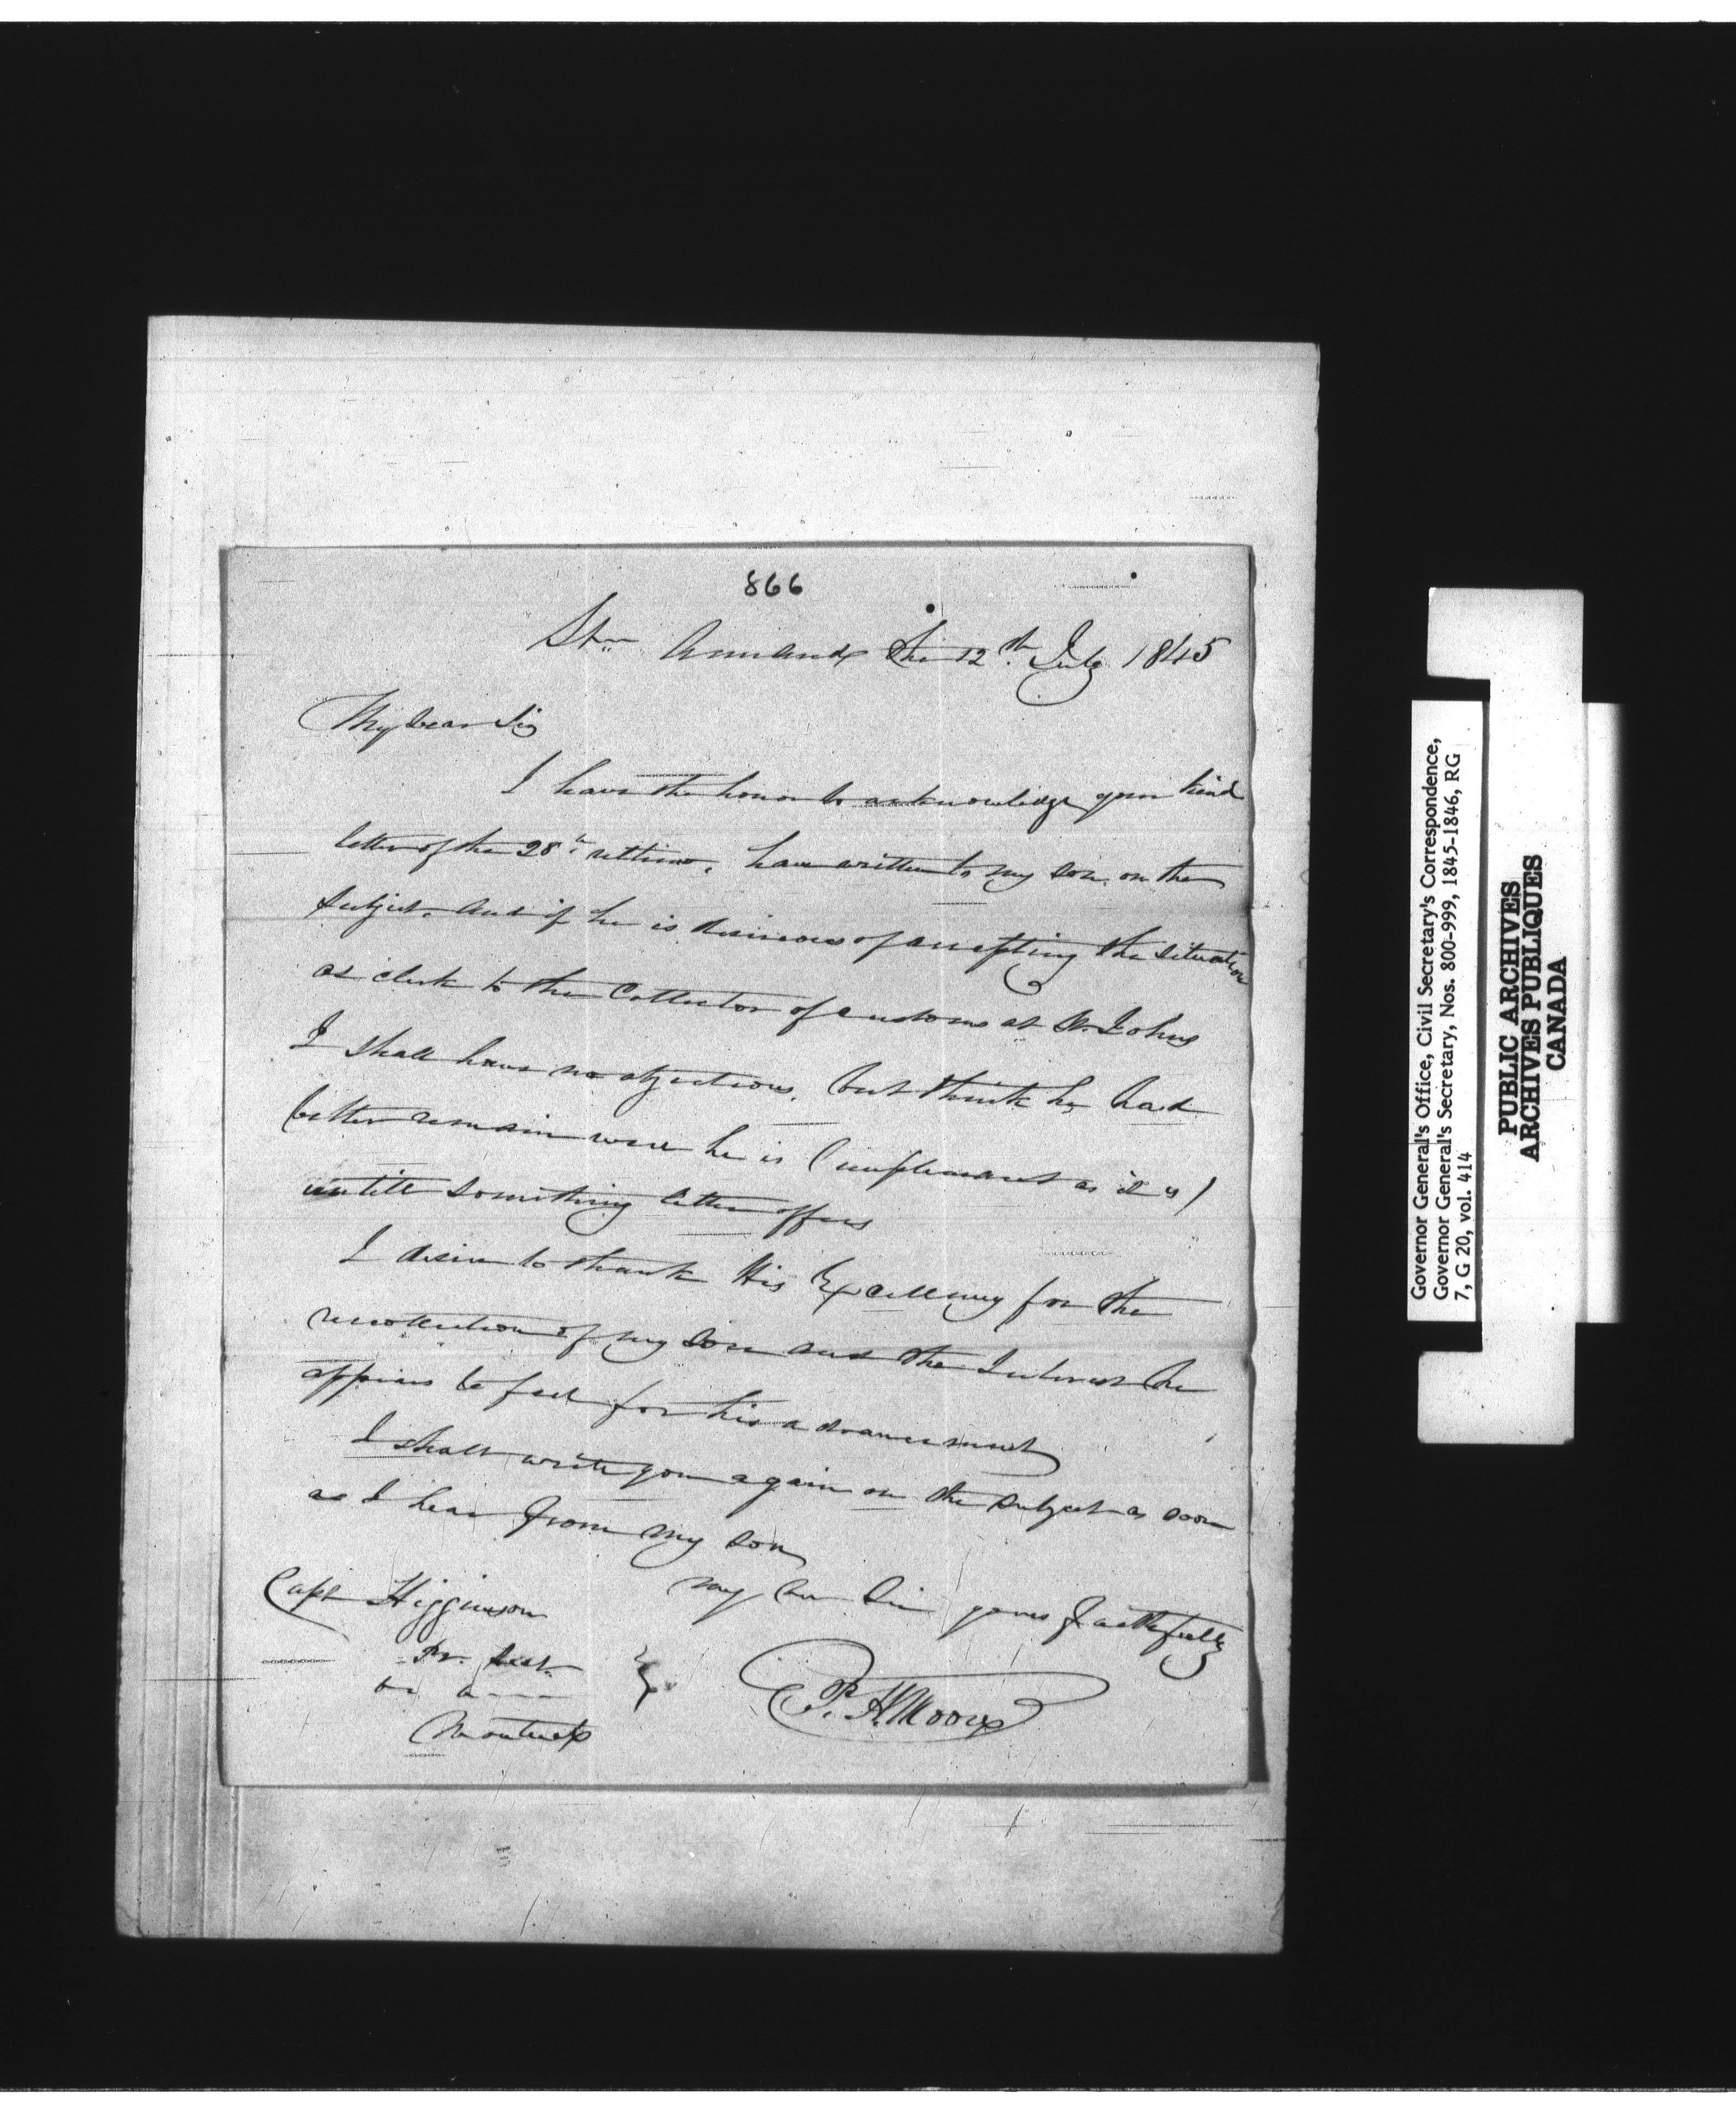 866
St. Armand the 12th July 1845
My dear Sir
I have the honor to acknowledge your kind
letter of the 28th ultimo, have written to my son on the
subject, and if he is desireous of accepting the situation
as clerk to the Collector of Customs at St. Johns
I shall have no objections, but think he had
better remain were he is (unpleasant as it is)
untill something better offers
I desire to thank His Excellency for the
recollection of my son and the Interest he
appears to feel for his advancement
I shall write you again on the subject as soon
as I hear from my son
my dear Sir yours faithfully
P. H. Moore
Capt Higginson
Pr. Sect.
Montreal
Governor General's Office, Civil Secretary's Correspondence,
Governor General's Secretary, Nos. 800-999, 1845-1846, RG
7, G 20, vol. 414
PUBLIC ARCHIVES
ARCHIVES PUBLIQUES
CANADA